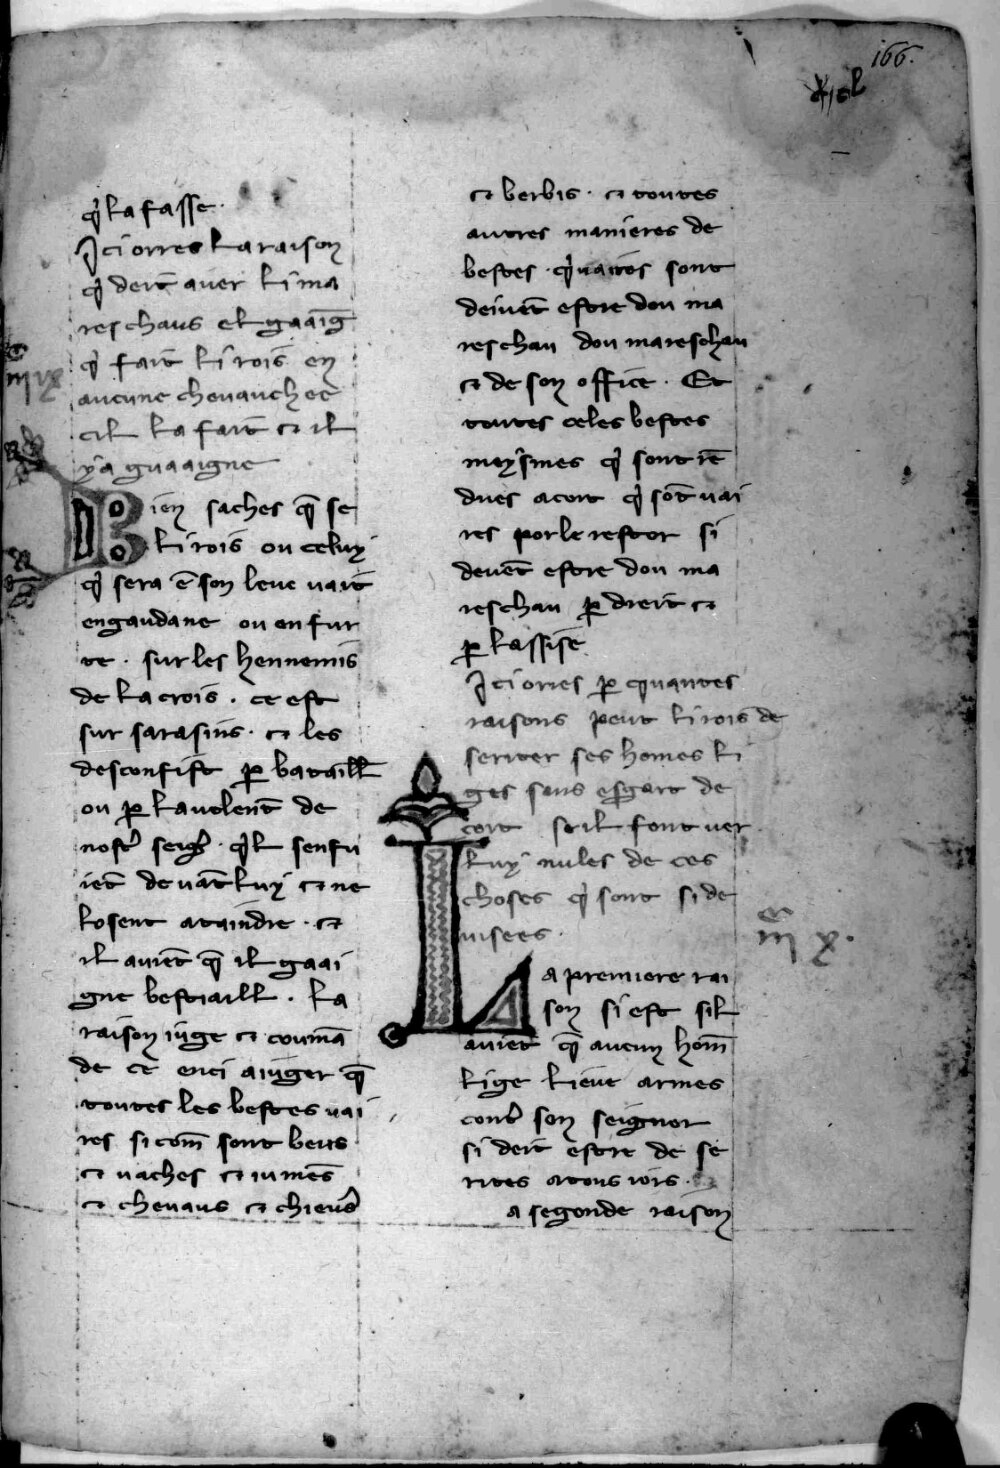 166.
q̇ la fasse.
Ici orres la raison
q̇ deit auer li ma
reschaus el gaaīg
q̇ fait li rois en
aucune cheuauchee
cil la fait et il
y a guaaigne
Bien saches q̄ se
li rois ou celuy
q̇ sera ē son leue uait
en gaudane ou en fur
te. sur les hennemis
de la crois. ce est
sur sarasins. et les
desconfist ꝑ bataill
ou ꝑ lauolent de
nostr̄ seigr̄. q̇l senfu
iēt deuāt luy et ne
losent ataindre. et
il auiēt q̄ il gaai
gne bestiaill. la
raison iuge et coumā
de ce enci aiuger q̄
toutes les bestes uai
res si com̄ sont beus
et uaches et iumēs
et cheuaus et chieur̄s
et berbis. et toutes
autres manieres de
bestes q̇ sont
deiuēt estre dou ma
reschau dou mareschau
et de son office. Et
toutes celes bestes
meysmes q̇ sont rē
dues acort q̇ sōt uai
res por le restor si
deuēt estre dou ma
reschau ꝑ dreit et
ꝑ lassise
Ici ories ꝑ quantes
raisons peut li rois de
seriter ses homes li
ges sans esgart de
cort se il font uer
luy nules de ces
choses q̇ sont si de
uisees.
m̄ x.
La premiere rai
son si est sil
auiēt q̄ aucun hom̄
lige lieue armes
contr̄ son seignor
si deit estre de se
rites a tous iors.
a segonde raison